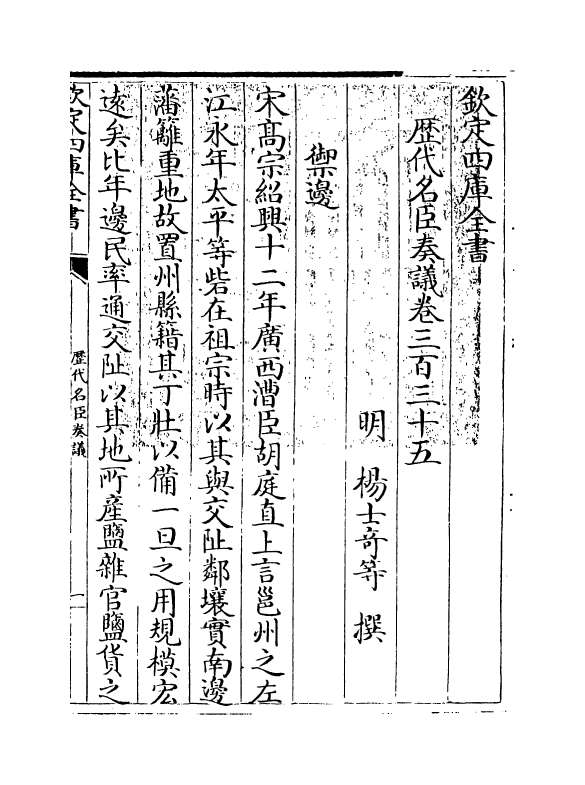 欽定四庫全書
歴代名臣奏議卷三百三十五
明　楊士竒等　撰
禦邊
宋髙宗紹興十二年廣西漕臣胡庭直上言邕州之左
江永年太平等砦在祖宗時以其與交阯鄰壤實南邊
藩籬重地故置州縣籍其丁壯以備一旦之用規模宏
逺矣比年邊民率通交阯以其地所產鹽雜官鹽貨之
欽定四庫全書
歴代名臣奏議
一